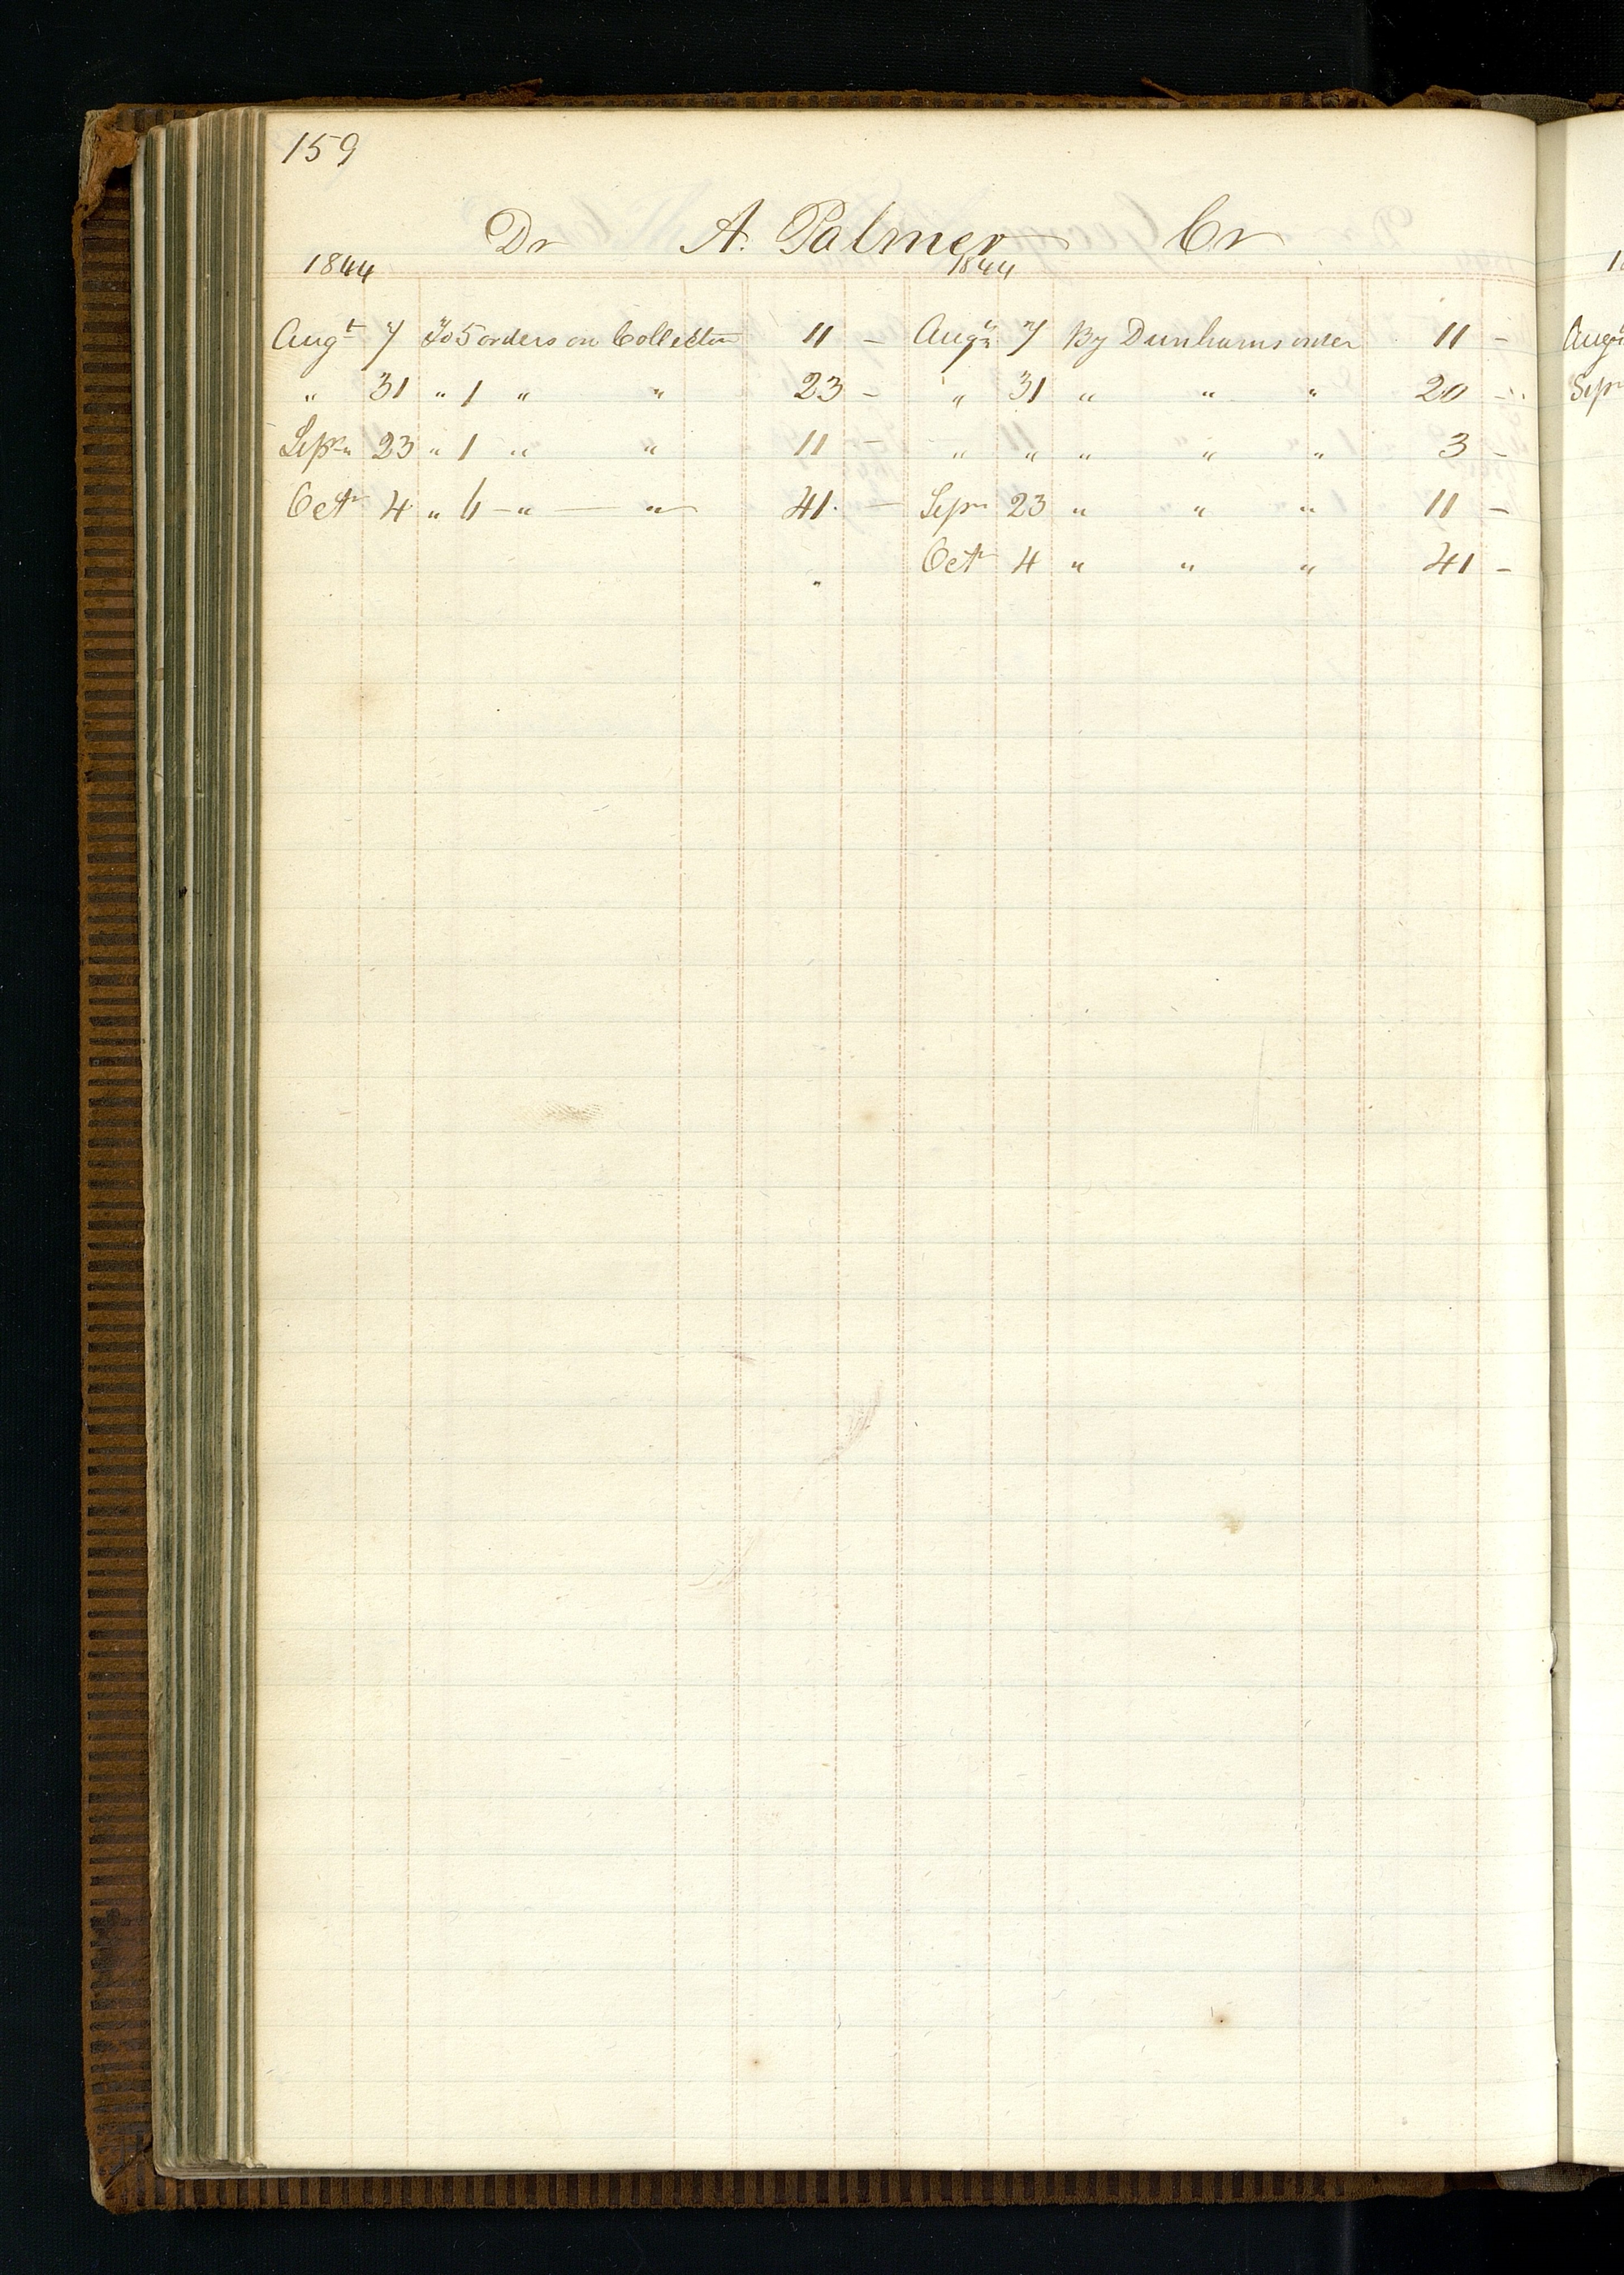 159
Dr A. Palmer Cr
1844 1844
Augt 7 To 5 orders on Collector 11 – Augt 7 By Dunhams order 11 –
" 31 " 1 " " 23 – " 31 " " " 20 –
Sepr 23 " 1 " " 11 – " " " " " 3 –
Octr 4 " 6 – " — " 41. – Sepr 23 " " " 11 –
" Octr 4 " " " 41 –